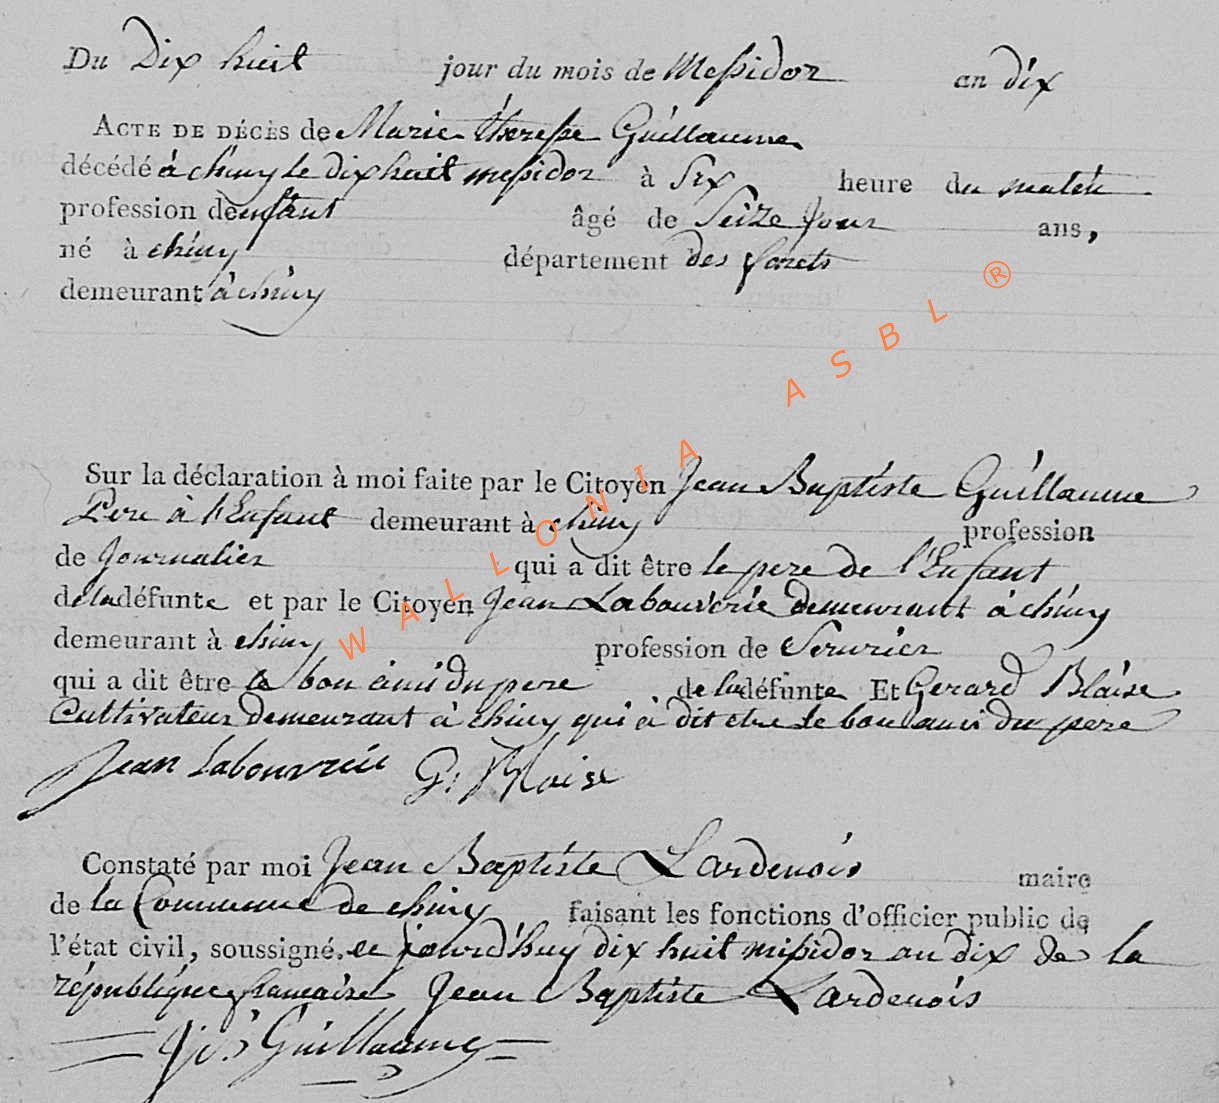 Du Dix huit jour du mois de Messidor an dix
ACTE DE DÉCÈS de Marie theresse Guillaume
décédé à chiny le dix huit messidor à Six heure du matin
profession denfant âgé de Seize Jour ans,
né à chiny département des forets
demeurant à chiny
Sur la déclaration à moi faite par le Citoyen Jean Baptiste Guillaume
Pere à l'Enfant demeurant à chiny profession
de Journalier qui a dit être le pere de l'Enfant
de la défunte et par le Citoyen Jean Labouverie demeurant à chiny
demeurant à chiny profession de Serurier
qui a dit être le bon ami du pere de la défunte Et Gerard Blaise
Cultivateur demeurant à chiny qui à dit etre le bon ami du pere
Jean Labouvrie G: Blaise
Constaté par moi Jean Baptiste Lardenois maire
de la Commune de chiny faisant les fonctions d'officier public de
l'état civil, soussigné. ce jourd'huy dix huit messidor an dix de la
république francaise Jean Baptiste Lardenois
Guillaume
WALLONIA ASBL ®